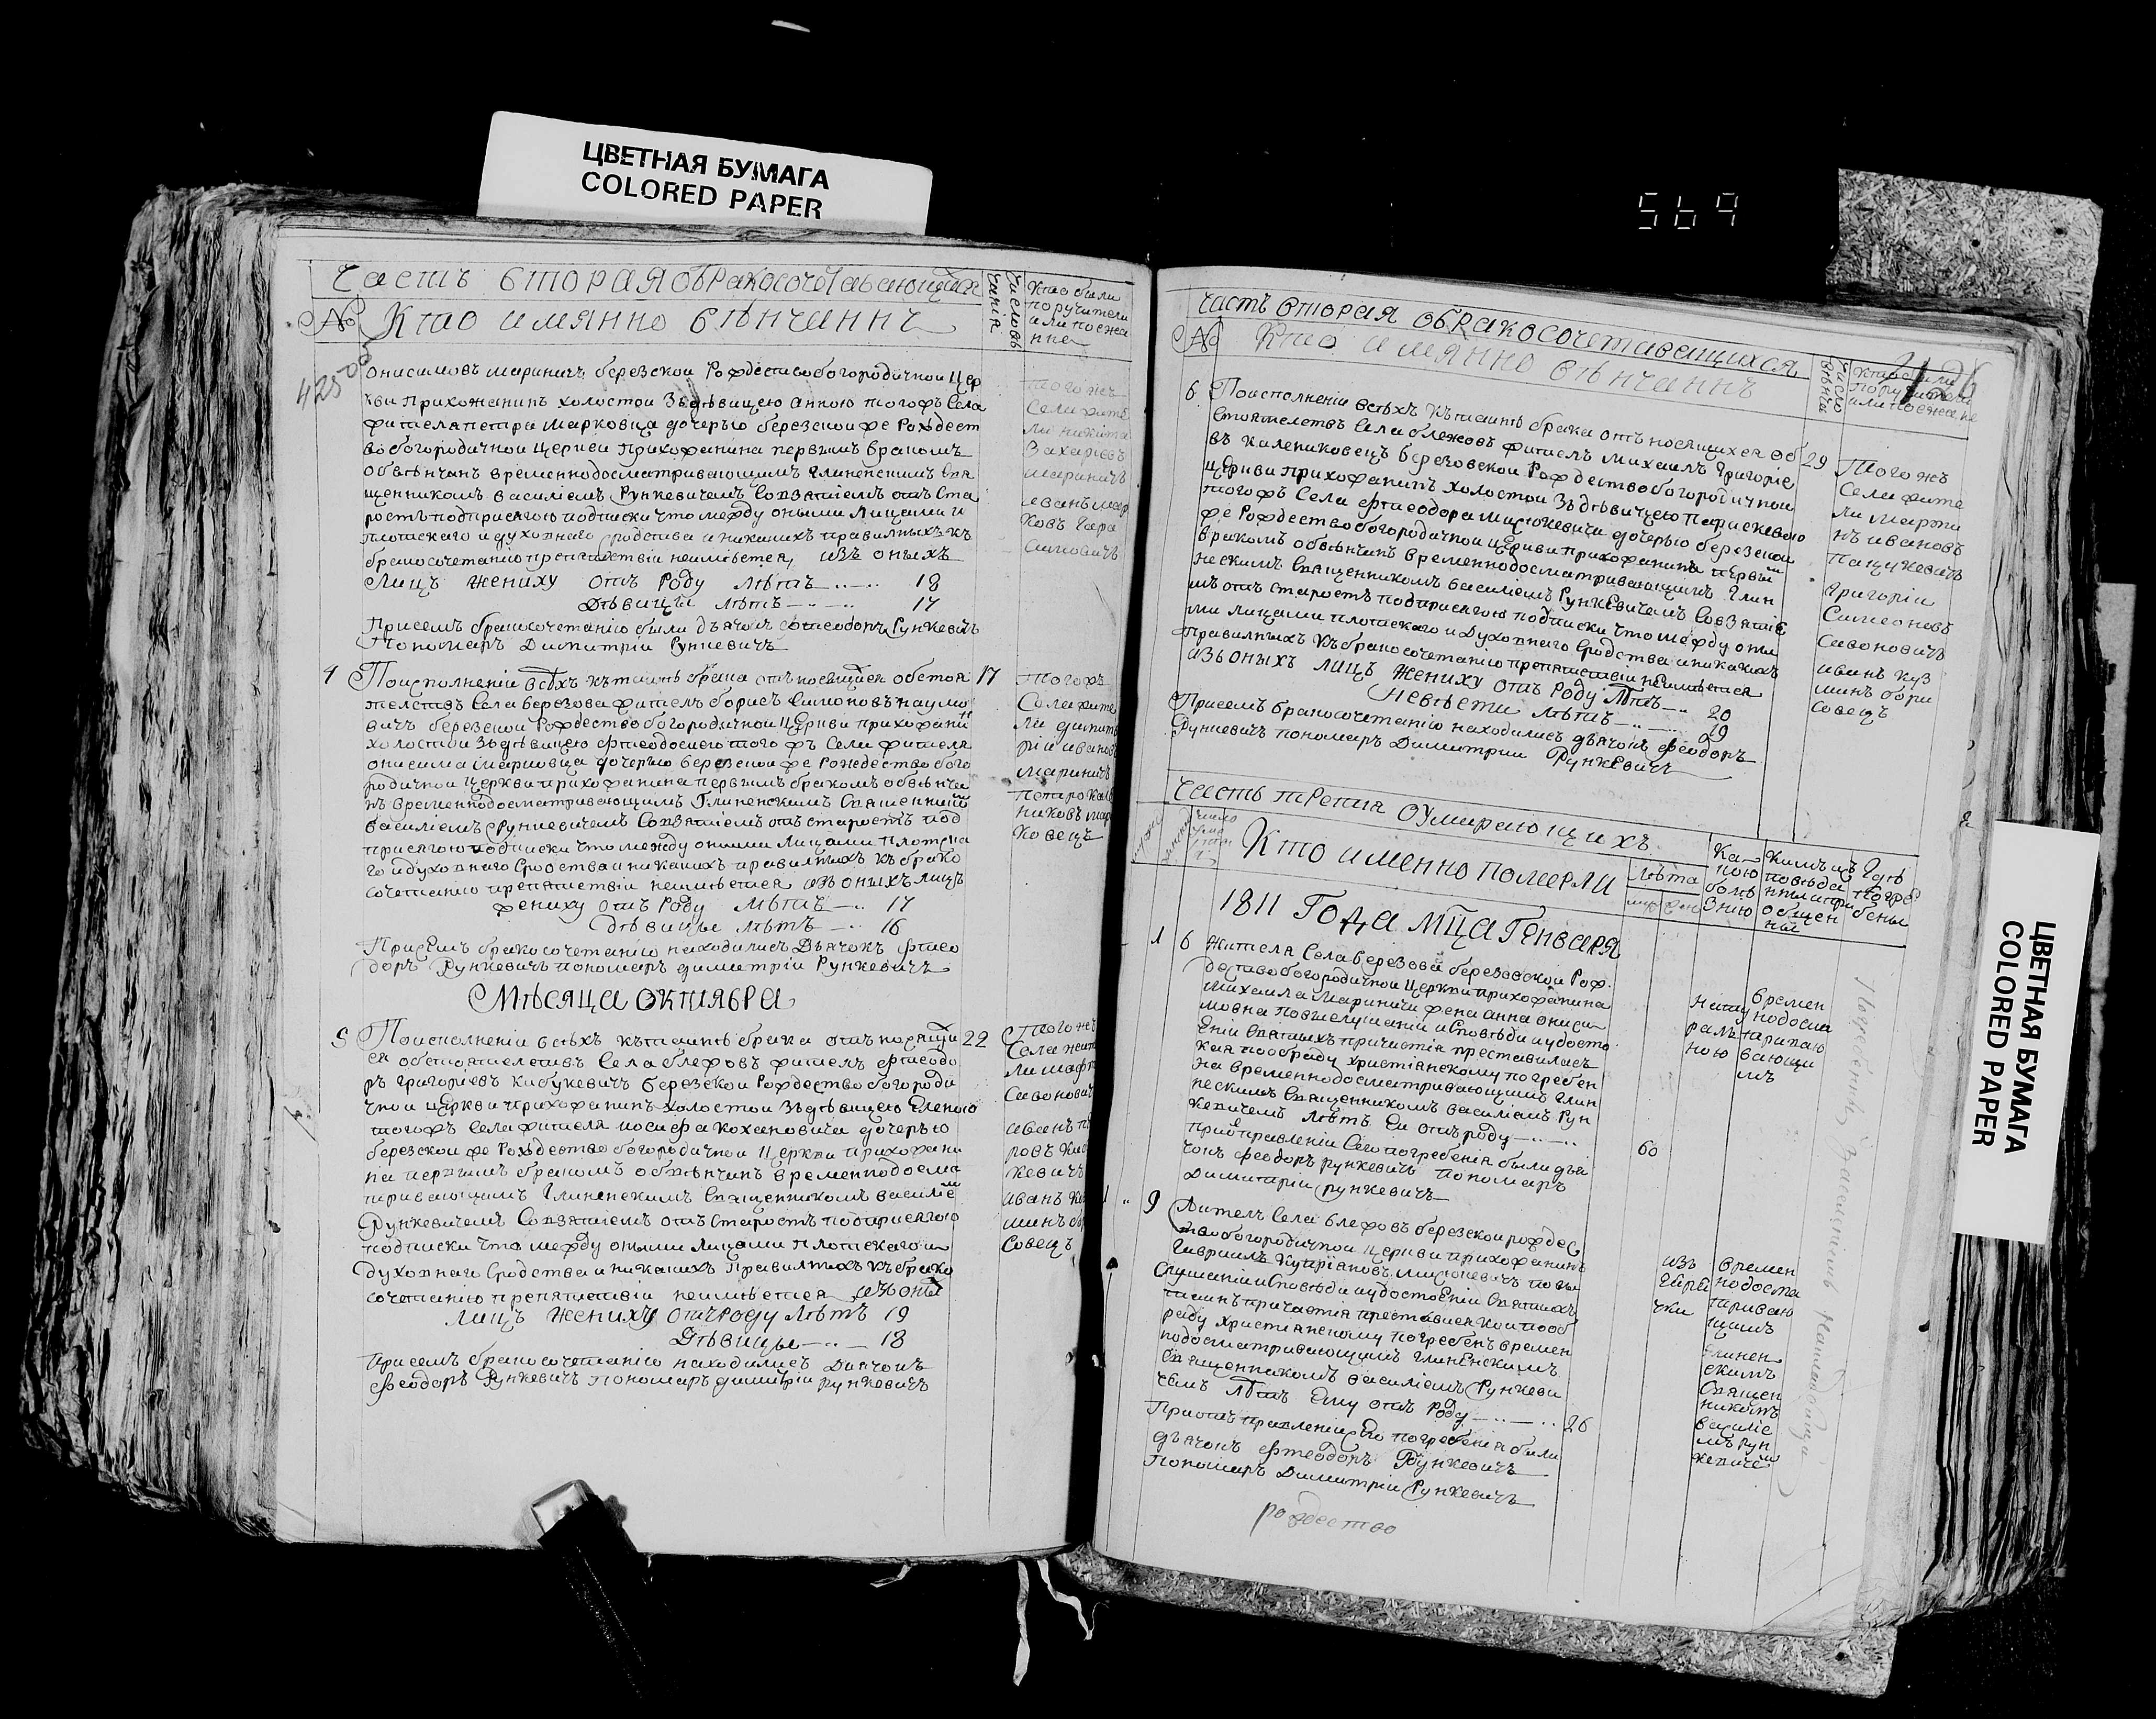 ЦВЕТНАЯ БУМАГА
COLORED PAPER
569
Часть вторая обракосочетавающихся
№ Кто имянно вѣнчаннъ
Кто были
поручители
или поежа
нне
425
онисимовъ маринич березской Рождествобогородичной Цер
кви Прихожанинъ холостой Зъдѣвицею Анною тогожъ Села
жителя петра Марковца дочерью березской же Рождест
вобогородичной Церкви Прихожанина первымъ бракомъ
обвѣнчан временнодосматривающимъ Глиненскимъ Свя
щенникомъ василіемъ Рункевичемъ Совзятіемъ отъ Ста
ростъ подприсягою подписки что между оными Лицами и
плотскаго и духовнаго сродства и никакихъ правилныхъ къ
бракосочетанію препятствіи неимѣется, изъ оныхъ
Лицъ жениху отъ Роду лѣтъ 18
дѣвицы лѣтъ 17
Присемъ бракосочетанію были дьячокъ Фтеодоръ Рункевичъ
Пономаръ Димитріи Рункевичъ
того жъ
Села жите
ли никита
Захаріевъ
мариничъ
иванъ мар
ковъ Гара
симовичъ
4 Поисполненіи всѣхъ къ таинтѣ брака отъ носящихся обстоя 17
телствъ Села березова житель борисъ Симоновъ наумо
вичъ березской Рождествобогородичной Церкви прихожанинъ
холостой Зъдѣвицею Фтеодосиею того жъ Села жителя
онисима Марковца дочерью березской же Рождество бого
родичной Церкви прихожанина первымъ бракомъ обвѣнча
нъ временнодосматривающимъ Глиненскимъ Священникомъ
василіемъ Рункевичемъ Совзятіемъ отъ старостъ под
присягою подписки что между оными Лицами плотска
го и духовнаго Сродства и никакихъ правилныхъ къ брако
сочетанію препятствіи неимѣется изъ оныхъ лицъ
жениху отъ Роду лѣтъ 17
дѣвицы лѣтъ 16
Присемъ бракосочетанію находились Дьячокъ Фтео
доръ Рункевичъ пономаръ димитріи Рункевичъ
тогожъ
Села жите
ли димит
ріи иванов
мариничъ
петро
никовъ мар
ковецъ
Мѣсяца октября
5 Поисполненіи всѣхъ къ таинтѣ брака отъ носящи 22
ся обстоятелствъ Села блежовъ житель Фтеодо
ръ григоріевъ Кибукевичъ березской Рождество богороди
чной церкви прихожанинъ холостой Зъдѣвицею Еленою
тогожъ Села жителя иосифа Кохановича дочерью
березской же Рождество богородичной Церкви прихожани
на первымъ бракомъ обвѣнчанъ временнодосма
тривающимъ Глиненскимъ Священникомъ василіемъ
Рункевичемъ Совзятіемъ отъ Старостъ подприсягою
подписки что между оными лицами плотскаго и
духовнаго Сродства и никакихъ Правилныхъ къ брако
сочетанію препятствіи неимѣется изъ оных
лицъ жениху отъ роду лѣтъ 19
Дѣвицы 18
Присемъ бракосочетанію находились Дьячокъ
Феодоръ Рункевичъ пономаръ димитріи рункевичъ
тогожъ
Села жите
ли
Савонович
иванъ
ровъ
кевичъ
иванъ
минъ бо
совецъ
Часть вторая обракосочетавающихся
№ Кто имянно вѣнчаннъ
Кто были
поручители
или поежане
6 Поисполненіи всѣхъ къ таинтѣ брака отъ носящихся об 29
стоятелствъ Села блежовъ житель Михаилъ Григоріе
въ калениковецъ березовской Рождествобогородичной
Церкви прихожанинъ холостой Зъдѣвицею Парискевою
тогожъ Села Фтеодора Мицкевича дочерью березской
же Рождествобогородичной церкви прихожанина первымъ
бракомъ обвѣнчанъ временнодосматривающимъ Глин
нескимъ Священникомъ василіемъ Рункевичемъ Совзятіе
мъ отъ старостъ подприсягою подписки что между оны
ми лицами плотскаго и Духовнаго сродства и никакихъ
Правилныхъ къ бракосочетанію препятствіи неимѣется
изъ оныхъ лицъ жениху отъ Роду лѣтъ 20
Невѣсти лѣтъ 19
Присемъ бракосочетанію находились дьячокъ Феодоръ
Рункевичъ пономаръ Димитрии Рункевичъ
Того жъ
Села жите
ли марти
нъ ивановъ
Пацукевичъ
Григоріи
Симеоновъ
Савоновичъ
иванъ куз
минъ бори
совецъ
Часть третіа оумирающихъ
Кто именно померли
Лѣта
Ка-
кою
болѣ
знію
Кимъ их
повѣда
ны и при
общен
ны
Гдѣ
погре
бены
1811 Года Мца Генваря
1 6 жителя Села березова березовской Рож
дествобогородичной Церкви прихожанина
Михаила Маринича жена анна ониси
мовна Повыслушании исповѣди и удосто
еніи Святыхъ причастія преставилась
кая пообряду христіанскому погребен
на временнодосматривающимъ Глин
нескимъ Священникомъ василіемъ Рун
кевичемъ лѣтъ Ей отъ роду
60
Приотправленіи Сего погребенія были дья
чокъ Феодоръ рункевичъ пономаръ
Димитріи рункевичъ
Нату
рал
ною
времен
нодосма
тривающи
мъ
1 " 9 житель Села блежовъ березской рождес
твобогородичной Церкви прихожанинъ
Гавриилъ Купріановъ повы
слушаніи исповѣди и удостоеніи Святыхъ
таинъ причастія преставися кои пооб
ряду христіанскому погребенъ времен
нодосматривающимъ Глиненскимъ
Священникомъ василіемъ Рункеви
чемъ лѣтъ Ему отъ Роду 26
Приотправленіи Его погребенія были
дьячокъ Фтеодоръ Рункевичъ
Пономаръ Димитріи Рункевичъ
изъ
Горя
чки
времен
нодосма
триваю
щимъ
глинен
скимъ
Священ
никомъ
василіе
мъ рун
кевичемъ
рождество
ЦВЕТНАЯ БУМАГА
COLORED PAPER